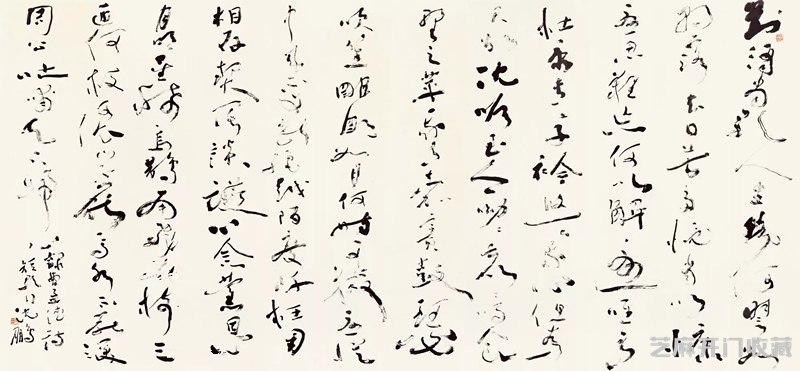 對酒當歌人生幾何譬如
朝露去日苦多慨當以慷
憂思難忘何以解憂唯有
杜康青青子衿悠悠我心但為
君故沈吟至今呦呦鹿鳴食
野之苹我有嘉賓鼓瑟
吹笙明明如月何時可掇憂從
中來不可斷絕越陌度阡枉用
相存契闊談讌心念舊恩
月明星稀烏鵲南飛繞樹三
匝何枝可依山不厭高水不厭深
周公吐哺天下歸心
錄曹孟德詩
沈鵬
芝麻开门收藏